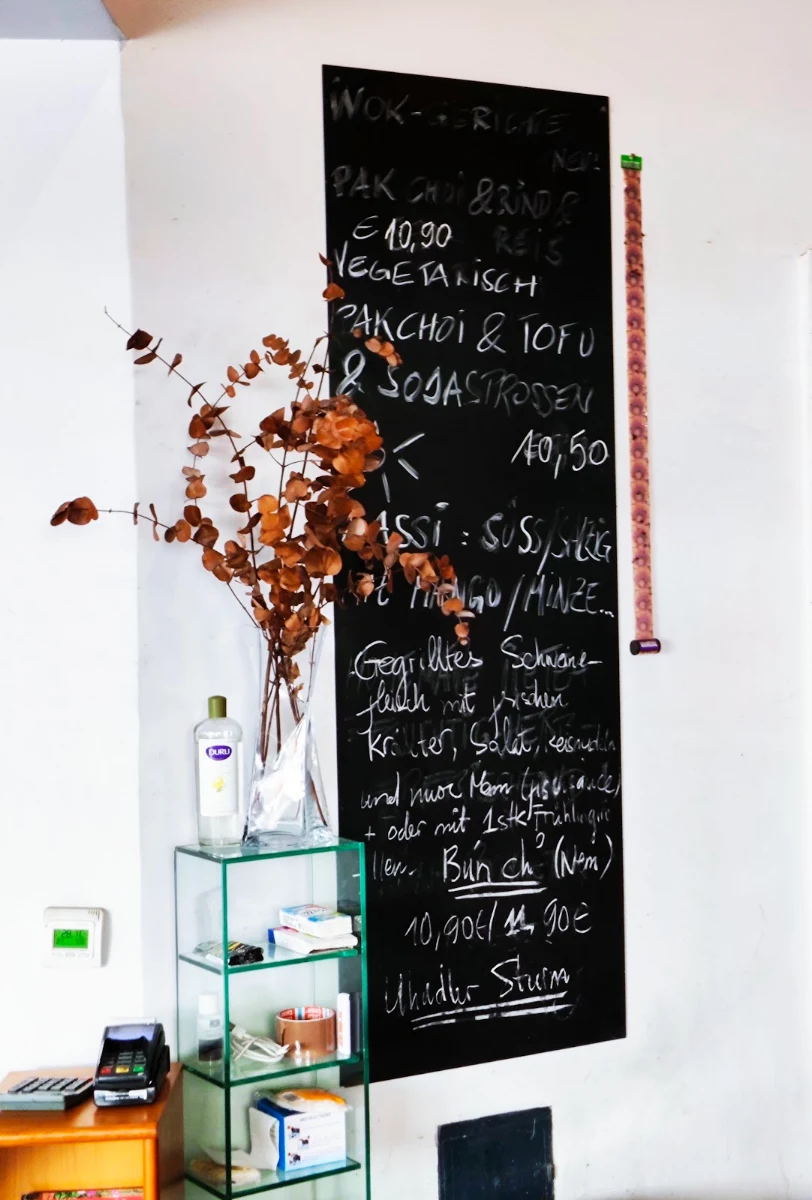 WOK-GERICHTE
NEU!
PAK CHOI & RIND &
€ 10,90 REIS
VEGETARISCH
PAKCHOI & TOFU
& SOJASTROSSEN
10,50
LASSI : SÜSS/SALZIG
MIT MANGO/MINZE...
Gegrilltes Schweine-
fleisch mit frischen
Kräuter, Salat, Reisnudeln
und nuoc Mam
+ oder mit 1stk Frühlings
Bún chả (Nem)
10,90€/ 11,90€
Sturm
DURU